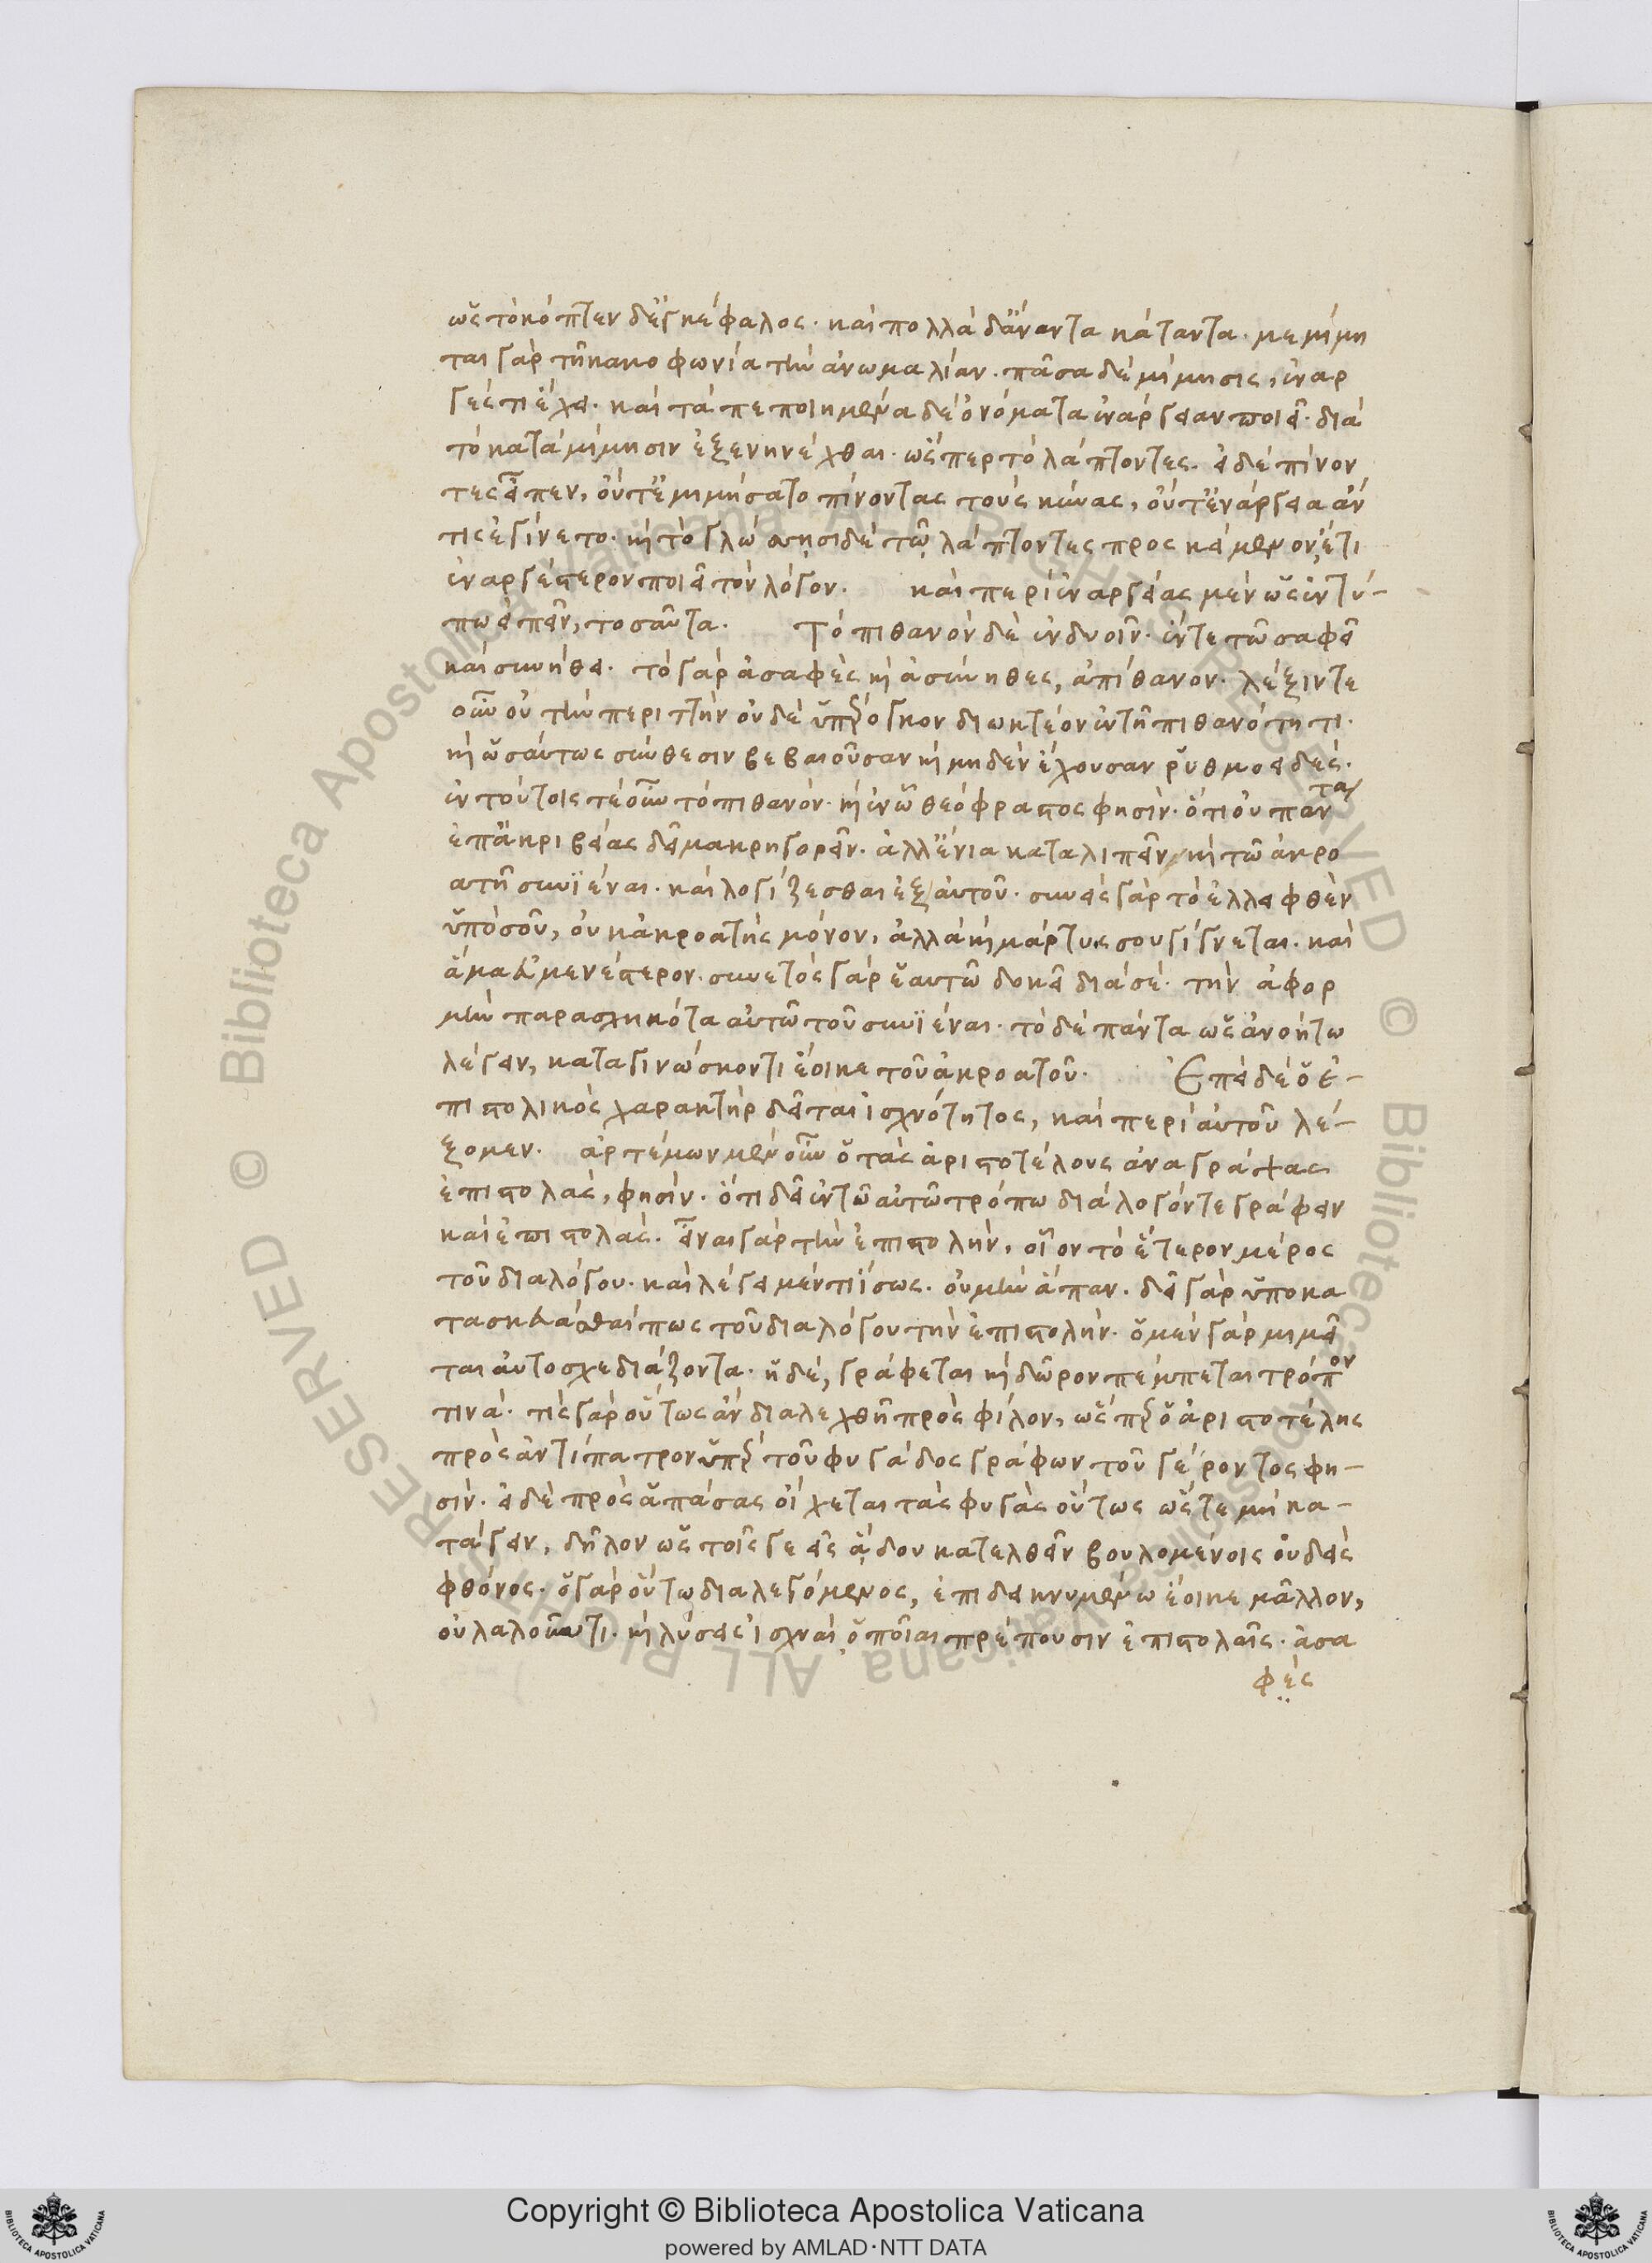 ὡς τὸ κόπτεν δ' ἐγκέφαλος· καὶ πολλὰ δ' ἄναντα κάταντα· μεμίμη
ται γὰρ τῆ κακοφωνία τὴν ἀνωμαλίαν· πᾶσα δὲ μίμησις, ἐναρ
γές τι ἔχει· καὶ τὰ πεποιημένα δὲ ὀνόματα ἐνάργειαν ποιεῖ· διὰ
τὸ κατὰ μίμησιν ἐξενηνέχθαι· ὥσπερ τὸ λάπτοντες· εἰ δὲ πίνον
τες εἶπεν, οὔτ' ἐμιμήσατο πίνοντας τοὺς κύνας, οὔτ' ἐνάργεια ἄν
τις ἐγίνετο· καὶ τὸ γλώσσησι δὲ τῶ λάπτοντες προσκείμενον, ἔτι
ἐναργέστερον ποιεῖ τὸν λόγον· καὶ περὶ ἐναργείας μὲν ὡς ἐν τύ-
πω εἰπεῖν, τοσαῦτα· Τὸ πιθανὸν δὲ ἐν δυοῖν· ἔν τε τῶ σαφεῖ
καὶ συνήθει· τὸ γὰρ ἀσαφὲς καὶ ἀσύνηθες, ἀπίθανον· λέξιν τε
οὖν οὐ τὴν περιττὴν οὐδὲ ὑπέρογκον διωκτέον ἐν τῆ πιθανότητι·
καὶ ὡσαύτως σύνθεσιν βεβαιοῦσαν καὶ μηδὲν ἔχουσαν ῥυθμοειδές·
ἐν τούτοις τε οὖν τὸ πιθανόν· καὶ ἐν ὧ θεόφραστος φησὶν· ὅτι οὐ πάντα
ἐπ' ἀκριβείας δεῖ μακρηγορεῖν· ἀλλ' ἔνια καταλιπεῖν καὶ τῶ ἀκρο
ατῆ συνϊέναι· καὶ λογίζεσθαι ἐξ αὐτοῦ· συνεὶς γὰρ τὸ ἐλλειφθὲν
ὑπὸ σοῦ, οὐκ ἀκροατὴς μόνον, ἀλλὰ καὶ μάρτυς σου γίγνεται· καὶ
ἅμα εὐμενέστερον· συνετὸς γὰρ ἑαυτῶ δοκεῖ διὰ σὲ· τὴν ἀφορ
μὴν παρασχηκότα αὐτῶ τοῦ συνϊέναι· τὸ δὲ πάντα ὡς ἀνοήτω
λέγειν, καταγινώσκοντι ἔοικε τοῦ ἀκροατοῦ· Ἐπεὶ δὲ ὁ ἐ-
πιστολικὸς χαρακτὴρ δεῖται ἰσχνότητος, καὶ περὶ αὐτοῦ λέ-
ξομεν· ἀρτέμων μὲν οὖν ὁ τὰς ἀριστοτέλους ἀναγράψας
ἐπιστολὰς, φησὶν· ὅτι δεῖ ἐν τῶ αὐτῶ τρόπω διάλογόν τε γράφειν
καὶ ἐπιστολὰς· εἶναι γὰρ τὴν ἐπιστολὴν, οἷον τὸ ἕτερον μέρος
τοῦ διαλόγου· καὶ λέγει μέν τι ἴσως· οὐ μὴν ἅπαν· δεῖ γὰρ ὑποκα
τασκευάσθαί πως τοῦ διαλόγου τὴν ἐπιστολὴν· ὁ μὲν γὰρ μιμεῖ
ται αὐτοσχεδιάζοντα· ἡ δὲ, γράφεται καὶ δῶρον πέμπεται τρόπον
τινὰ· τίς γὰρ οὕτως ἂν διαλεχθῆ πρὸς φίλον, ὥσπερ ὁ ἀριστοτέλης
πρὸς ἀντίπατρον ὑπὲρ τοῦ φυγάδος γράφων τοῦ γέροντος φη-
σὶν· εἰ δὲ πρὸς ἁπάσας οἴχεται τὰς φυγὰς οὕτως ὥστε μὴ κα-
τάγειν, δῆλον ὡς τοῖς γε εἰς ἅδου κατελθεῖν βουλομένοις οὐδεὶς
φθόνος· ὁ γὰρ οὕτω διαλεγόμενος, ἐπιδεικνυμένω ἔοικε μᾶλλον,
οὐ λαλοῦντι· καὶ λύσεις ἰσχναὶ ὁποῖαι πρέπουσιν ἐπιστολαῖς· ἀσα
φὲς
Copyright © Biblioteca Apostolica Vaticana
powered by AMLAD·NTT DATA